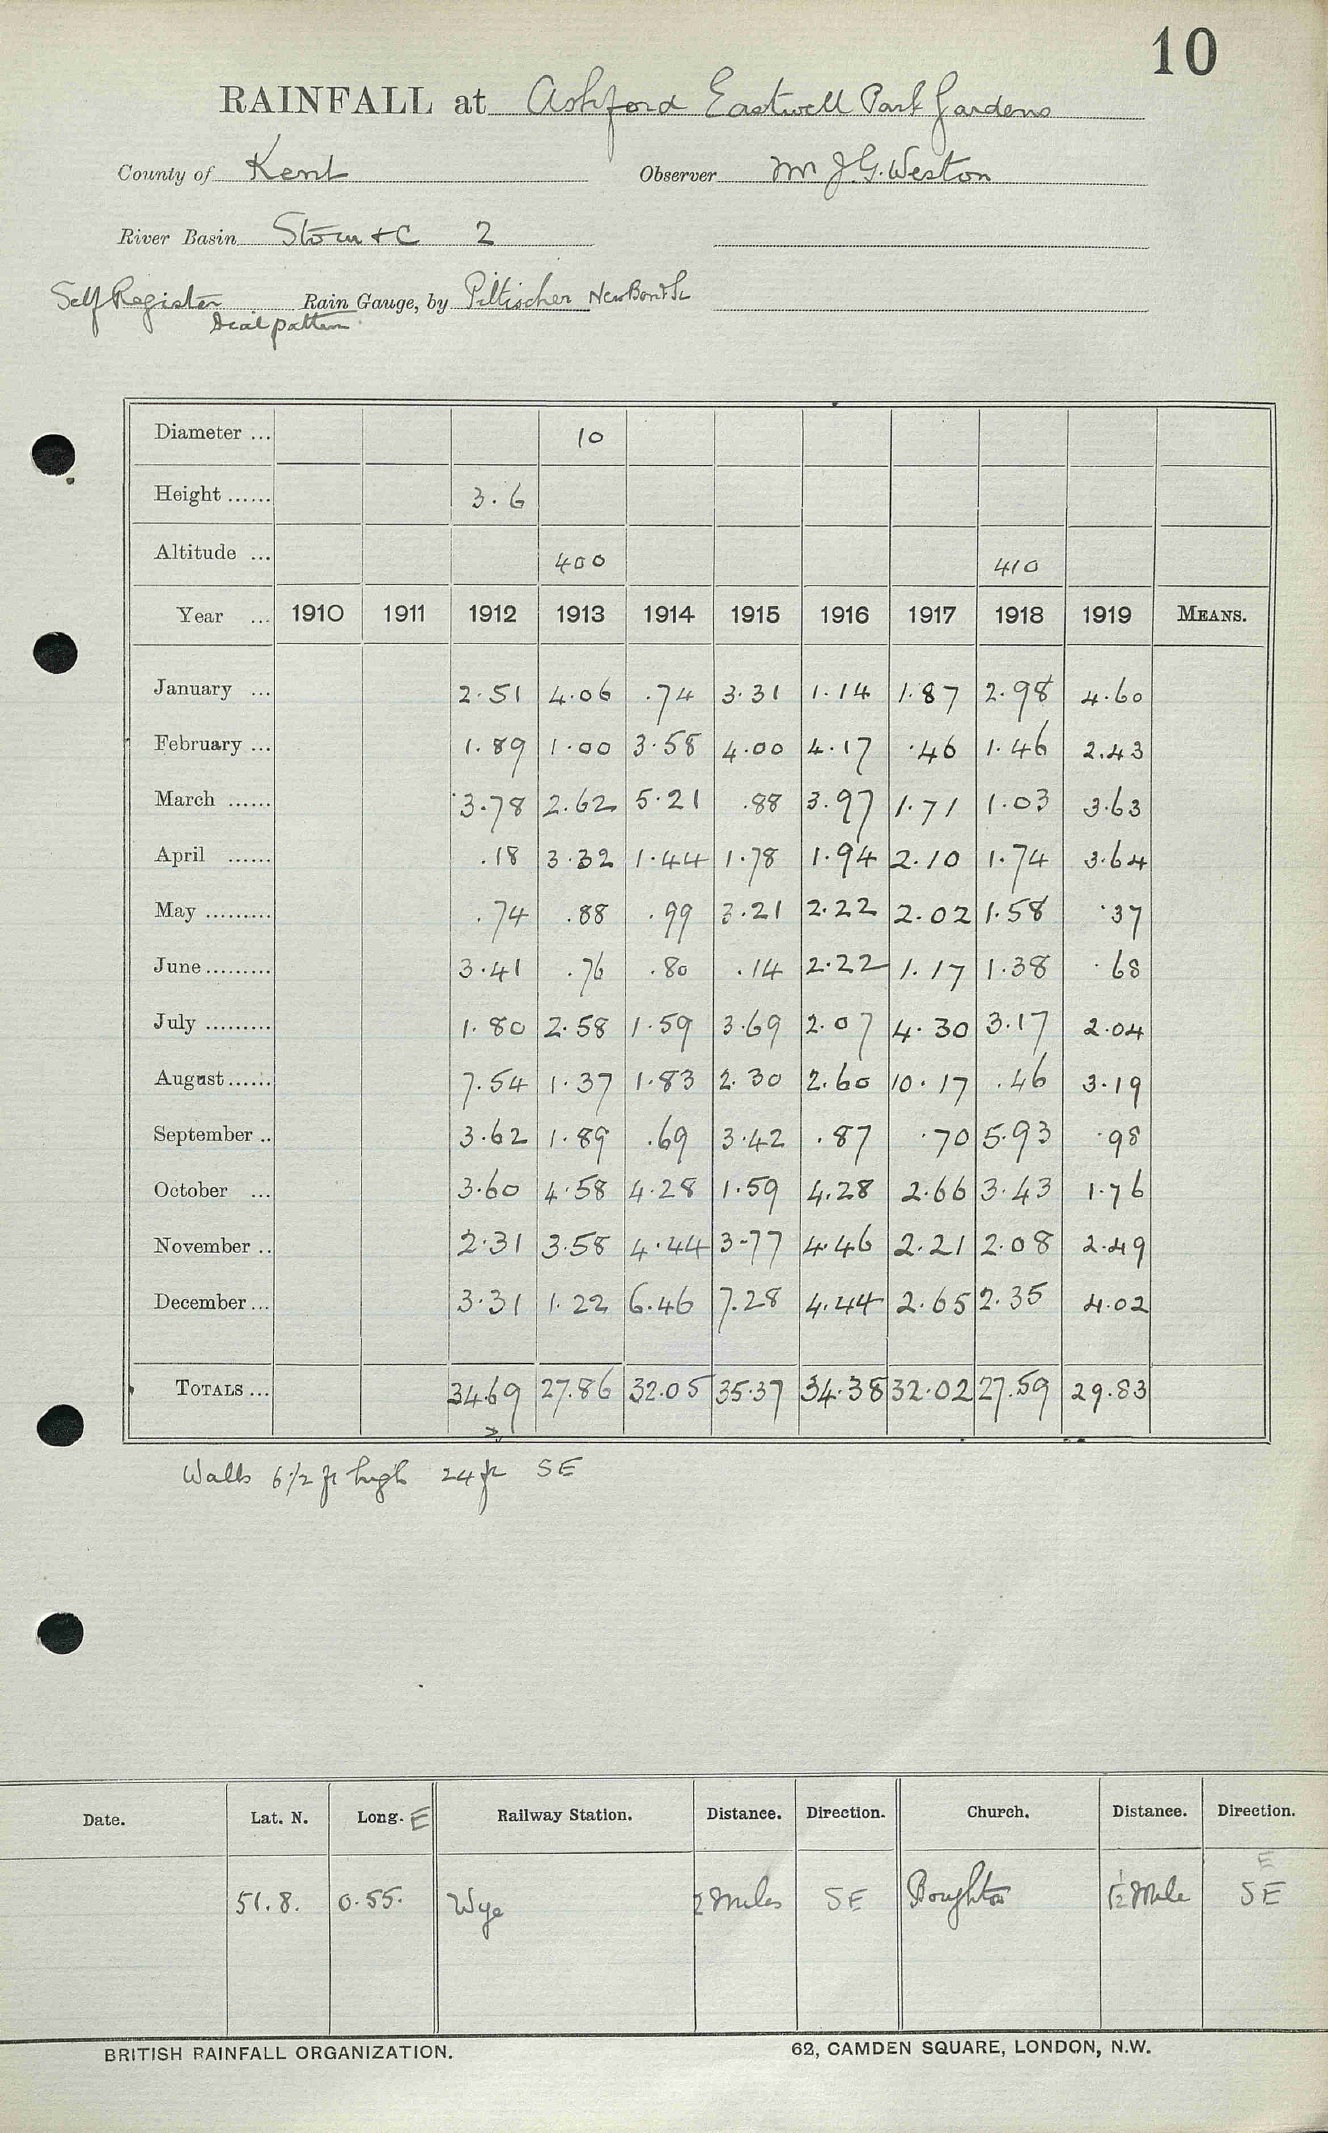 10
RAINFALL at Ashford Eastwell Park Gardens
County of Kent Observer Mr J.G. Weston
River Basin Stour + C 2
Self Register Rain Gauge, by Piltischer New Bond St
Dial pattern
Diameter ... 10
Height ...... 3.6
Altitude ... 400 410
Year ... 1910 1911 1912 1913 1914 1915 1916 1917 1918 1919 MEANS.
January ... 2.51 4.06 .74 3.31 1.14 1.87 2.98 4.60
February ... 1.89 1.00 3.58 4.00 4.17 .46 1.46 2.43
March ...... 3.78 2.62 5.21 .88 3.97 1.71 1.03 3.63
April ...... .18 3.32 1.44 1.78 1.94 2.10 1.74 3.64
May ......... .74 .88 .99 3.21 2.22 2.02 1.58 .37
June ......... 3.41 .76 .80 .14 2.22 1.17 1.38 .68
July ......... 1.80 2.58 1.59 3.69 2.07 4.30 3.17 2.04
August ...... 7.54 1.37 1.83 2.30 2.60 10.17 .46 3.19
September .. 3.62 1.89 .69 3.42 .87 .70 5.93 .98
October ... 3.60 4.58 4.28 1.59 4.28 2.66 3.43 1.76
November .. 2.31 3.58 4.44 3.77 4.46 2.21 2.08 2.49
December ... 3.31 1.22 6.46 7.28 4.44 2.65 2.35 4.02
TOTALS ... 34.69 27.86 32.05 35.37 34.38 32.02 27.59 29.83
Walls 6 1/2 ft high 24 ft SE
Date. Lat. N. Long. E Railway Station. Distance. Direction. Church. Distance. Direction.
E
51.8. 0.55. Wye 2 miles SE Boughton 1/2 Mile SE
BRITISH RAINFALL ORGANIZATION. 62, CAMDEN SQUARE, LONDON, N.W.